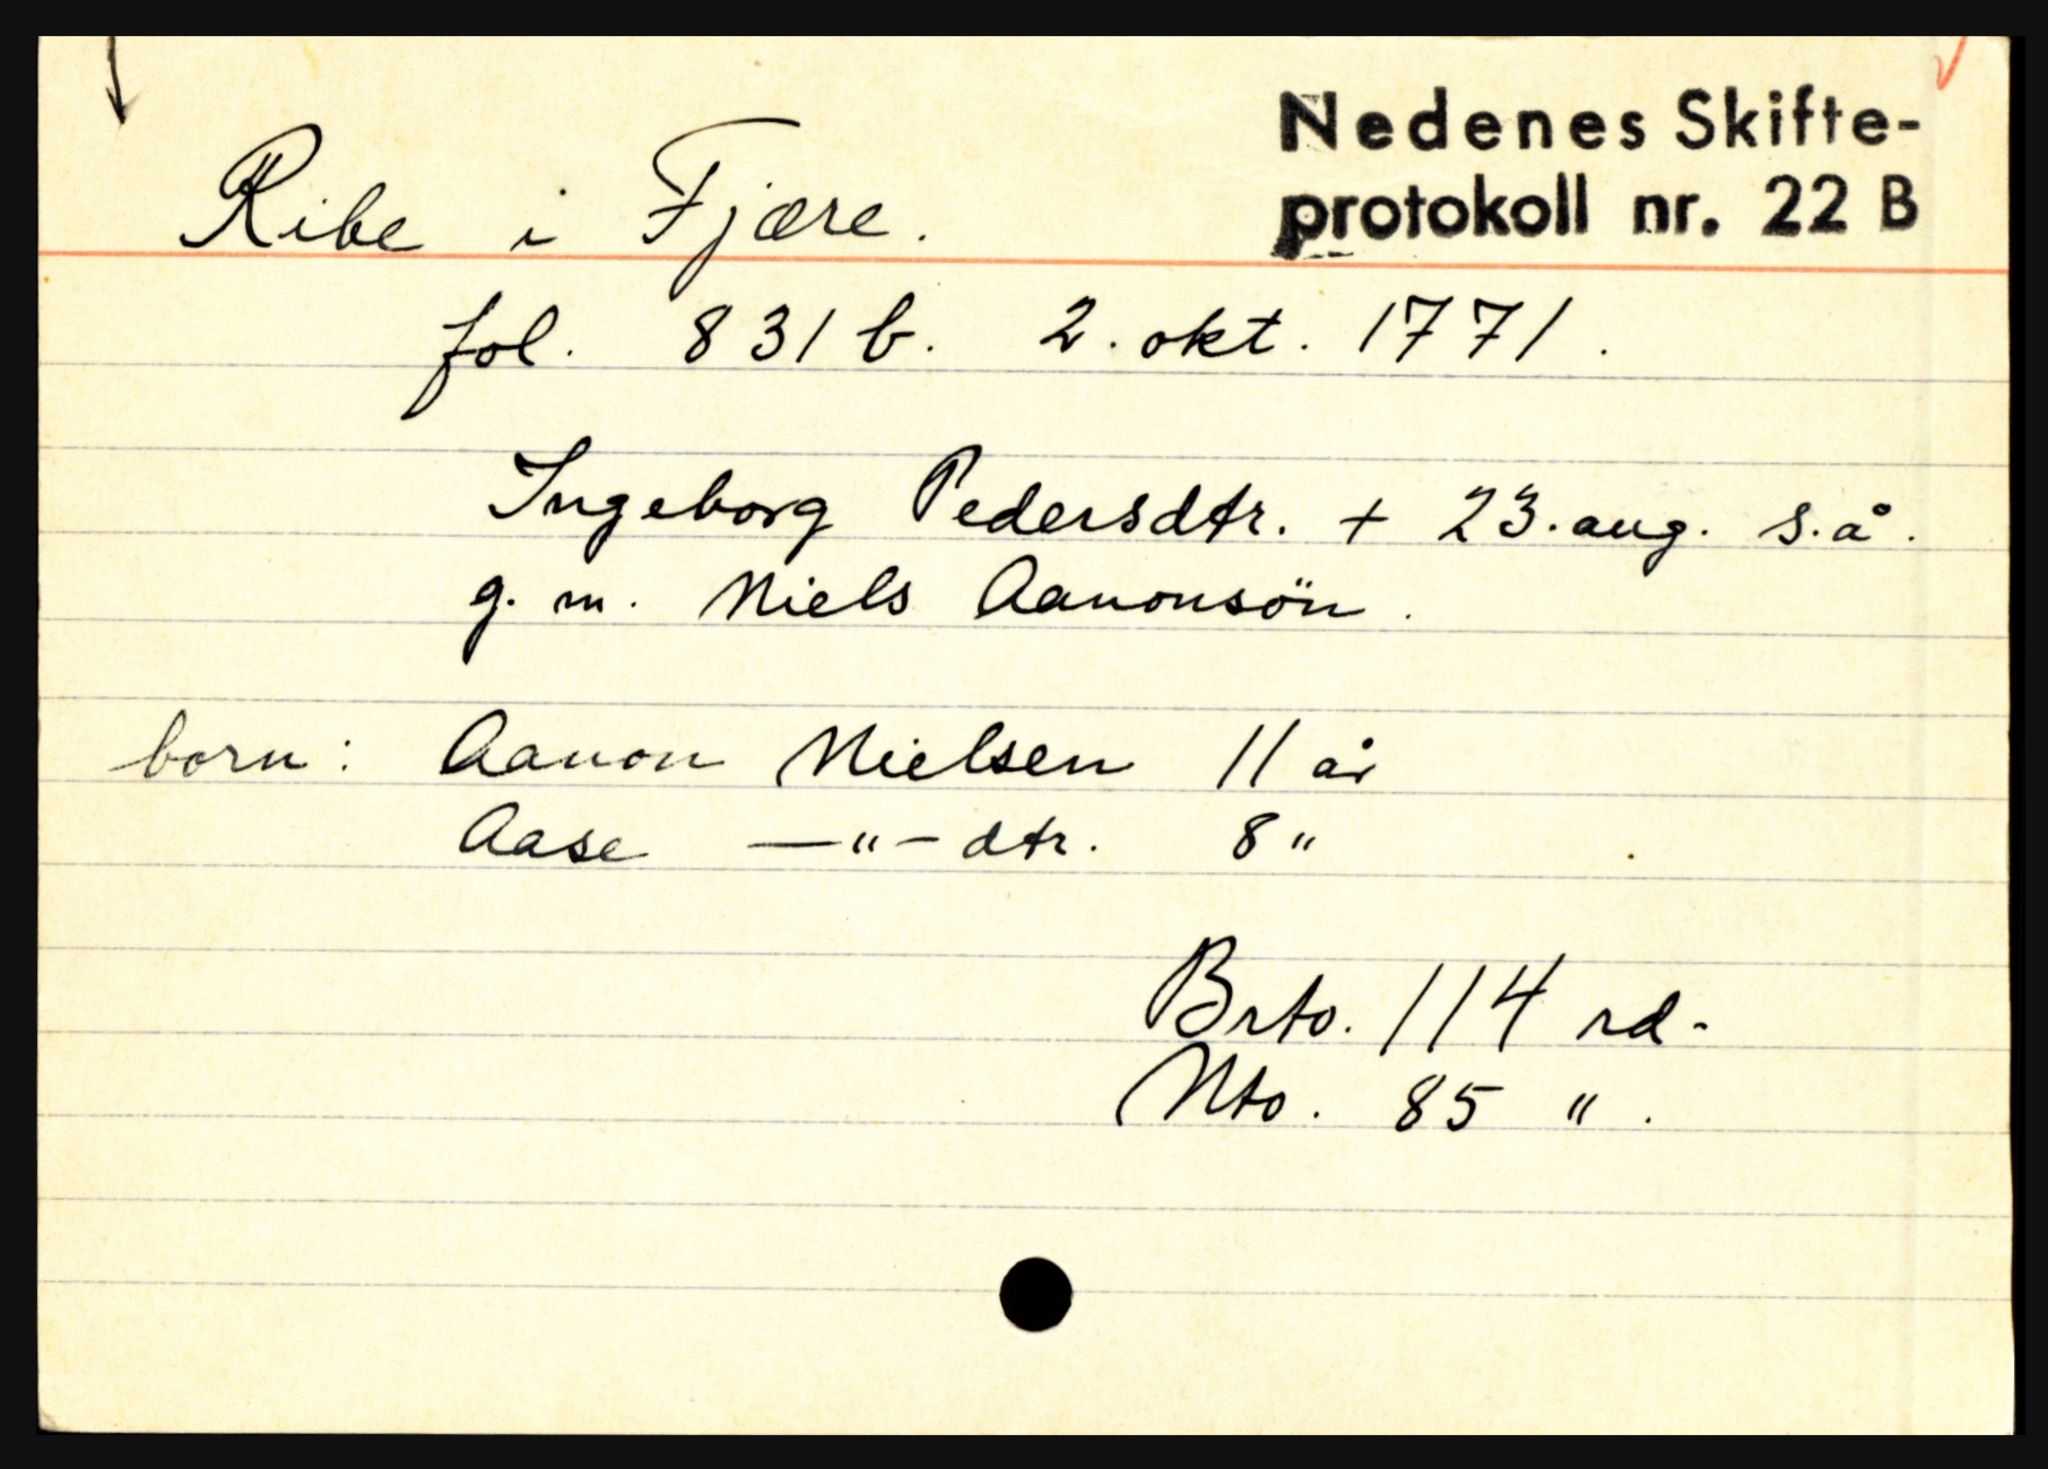 Nedenes Skifte-
protokoll nr. 22 B
Ribe i Fjære.
fol. 831 b. 2. okt. 1771.
Ingeborg Pedersdtr. + 23. aug. s.å.
g. m. Niels Aanonsön.
born: Aanon Nielsen 11 år
Aase —"— dtr. 8 "
Brto. 114 rd.
Nto. 85 ".